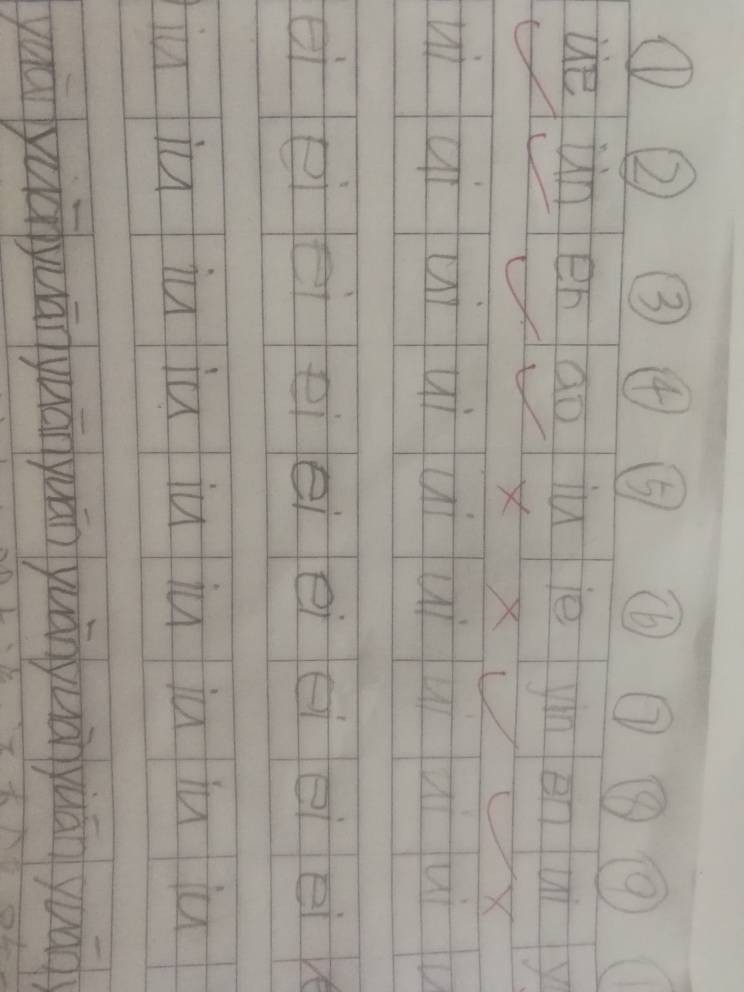 ① ② ③ ④ ⑤ ⑥ ⑦ ⑧ ⑨
üe ün er ao iu ie yin en ui
ui ui ui ui ui ui ui ui ui
ei ei ei ei ei ei ei ei ei
iu iu iu iu iu iu iu iu iu
yuān yuān yuān yuān yuān yuān yuān yuān yuān